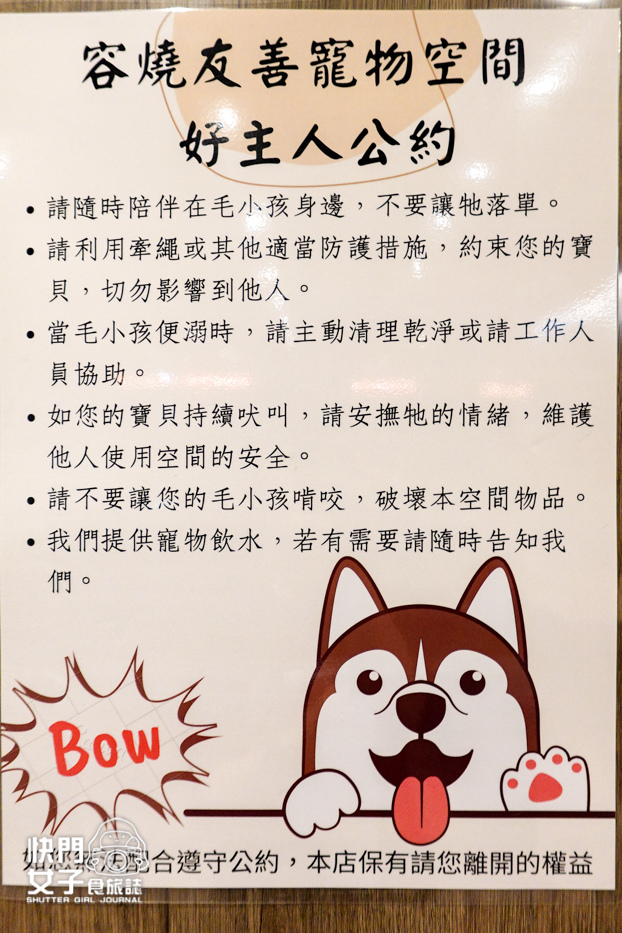 容燒友善寵物空間
好主人公約
• 請隨時陪伴在毛小孩身邊，不要讓牠落單。
• 請利用牽繩或其他適當防護措施，約束您的寶
貝，切勿影響到他人。
• 當毛小孩便溺時，請主動清理乾淨或請工作人
員協助。
• 如您的寶貝持續吠叫，請安撫牠的情緒，維護
他人使用空間的安全。
• 請不要讓您的毛小孩啃咬，破壞本空間物品。
• 我們提供寵物飲水，若有需要請隨時告知我
們。
Bow
配合遵守公約，本店保有請您離開的權益
快門
女子食旅誌
SHUTTER GIRL JOURNAL